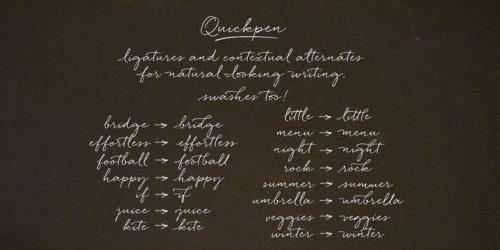 Quickpen
ligatures and contextual alternates
for natural-looking writing.
swashes too!
bridge → bridge
effortless → effortless
football → football
happy → happy
if → if
juice → juice
kite → kite
little → little
menu → menu
night → night
rock → rock
summer → summer
umbrella → umbrella
veggies → veggies
winter → winter